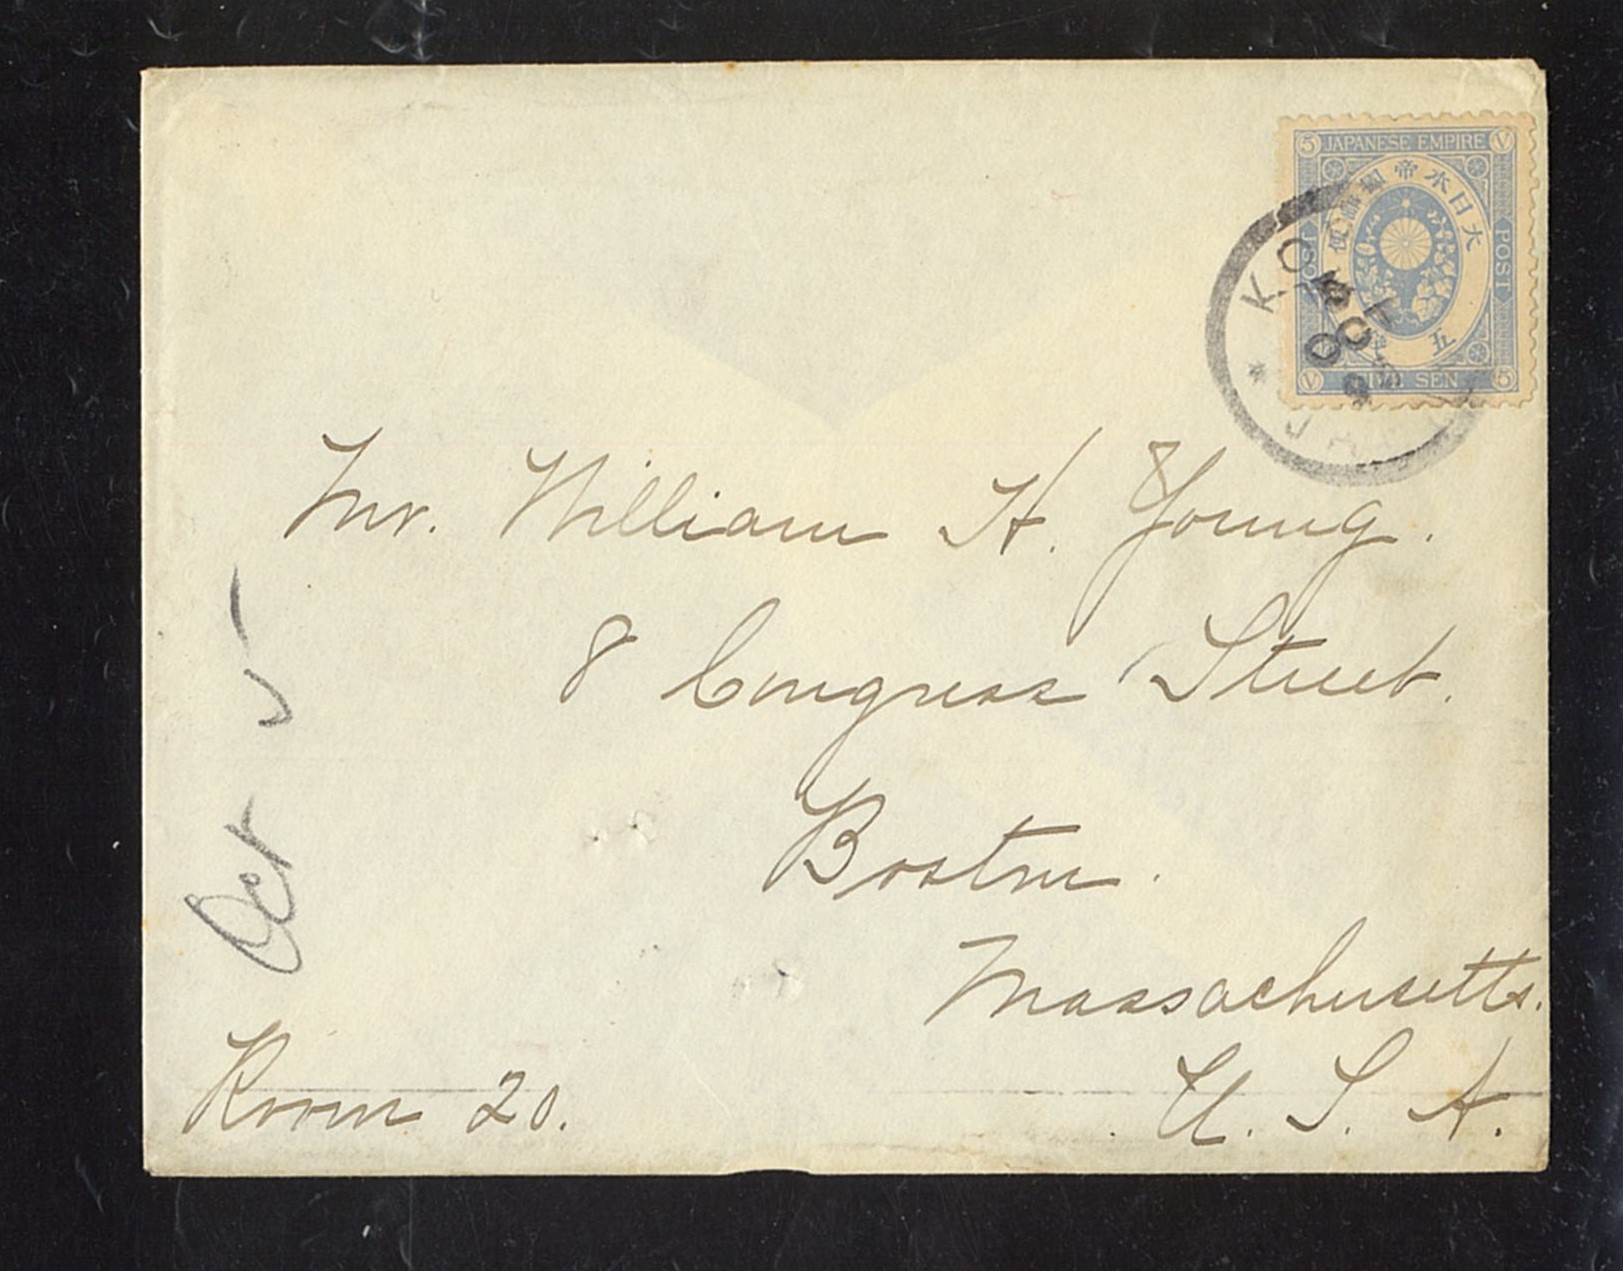 5 JAPANESE EMPIRE V
大日本帝國郵便
POST
POST
五
V SEN 5
KO
OCT
Mr. William H. Young.
8 Congress Street.
Boston.
Massachusetts.
U. S. A.
Room 20.
Oct